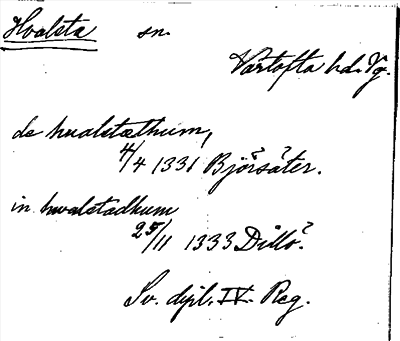 Hvalsta sn.
Vartofta hd. Vg.
de hualstathum,
4/4 1331 Björsäter.
in hwalstadhum
25/11 1333 Dillö.
Sv. dipl. IV. Reg.